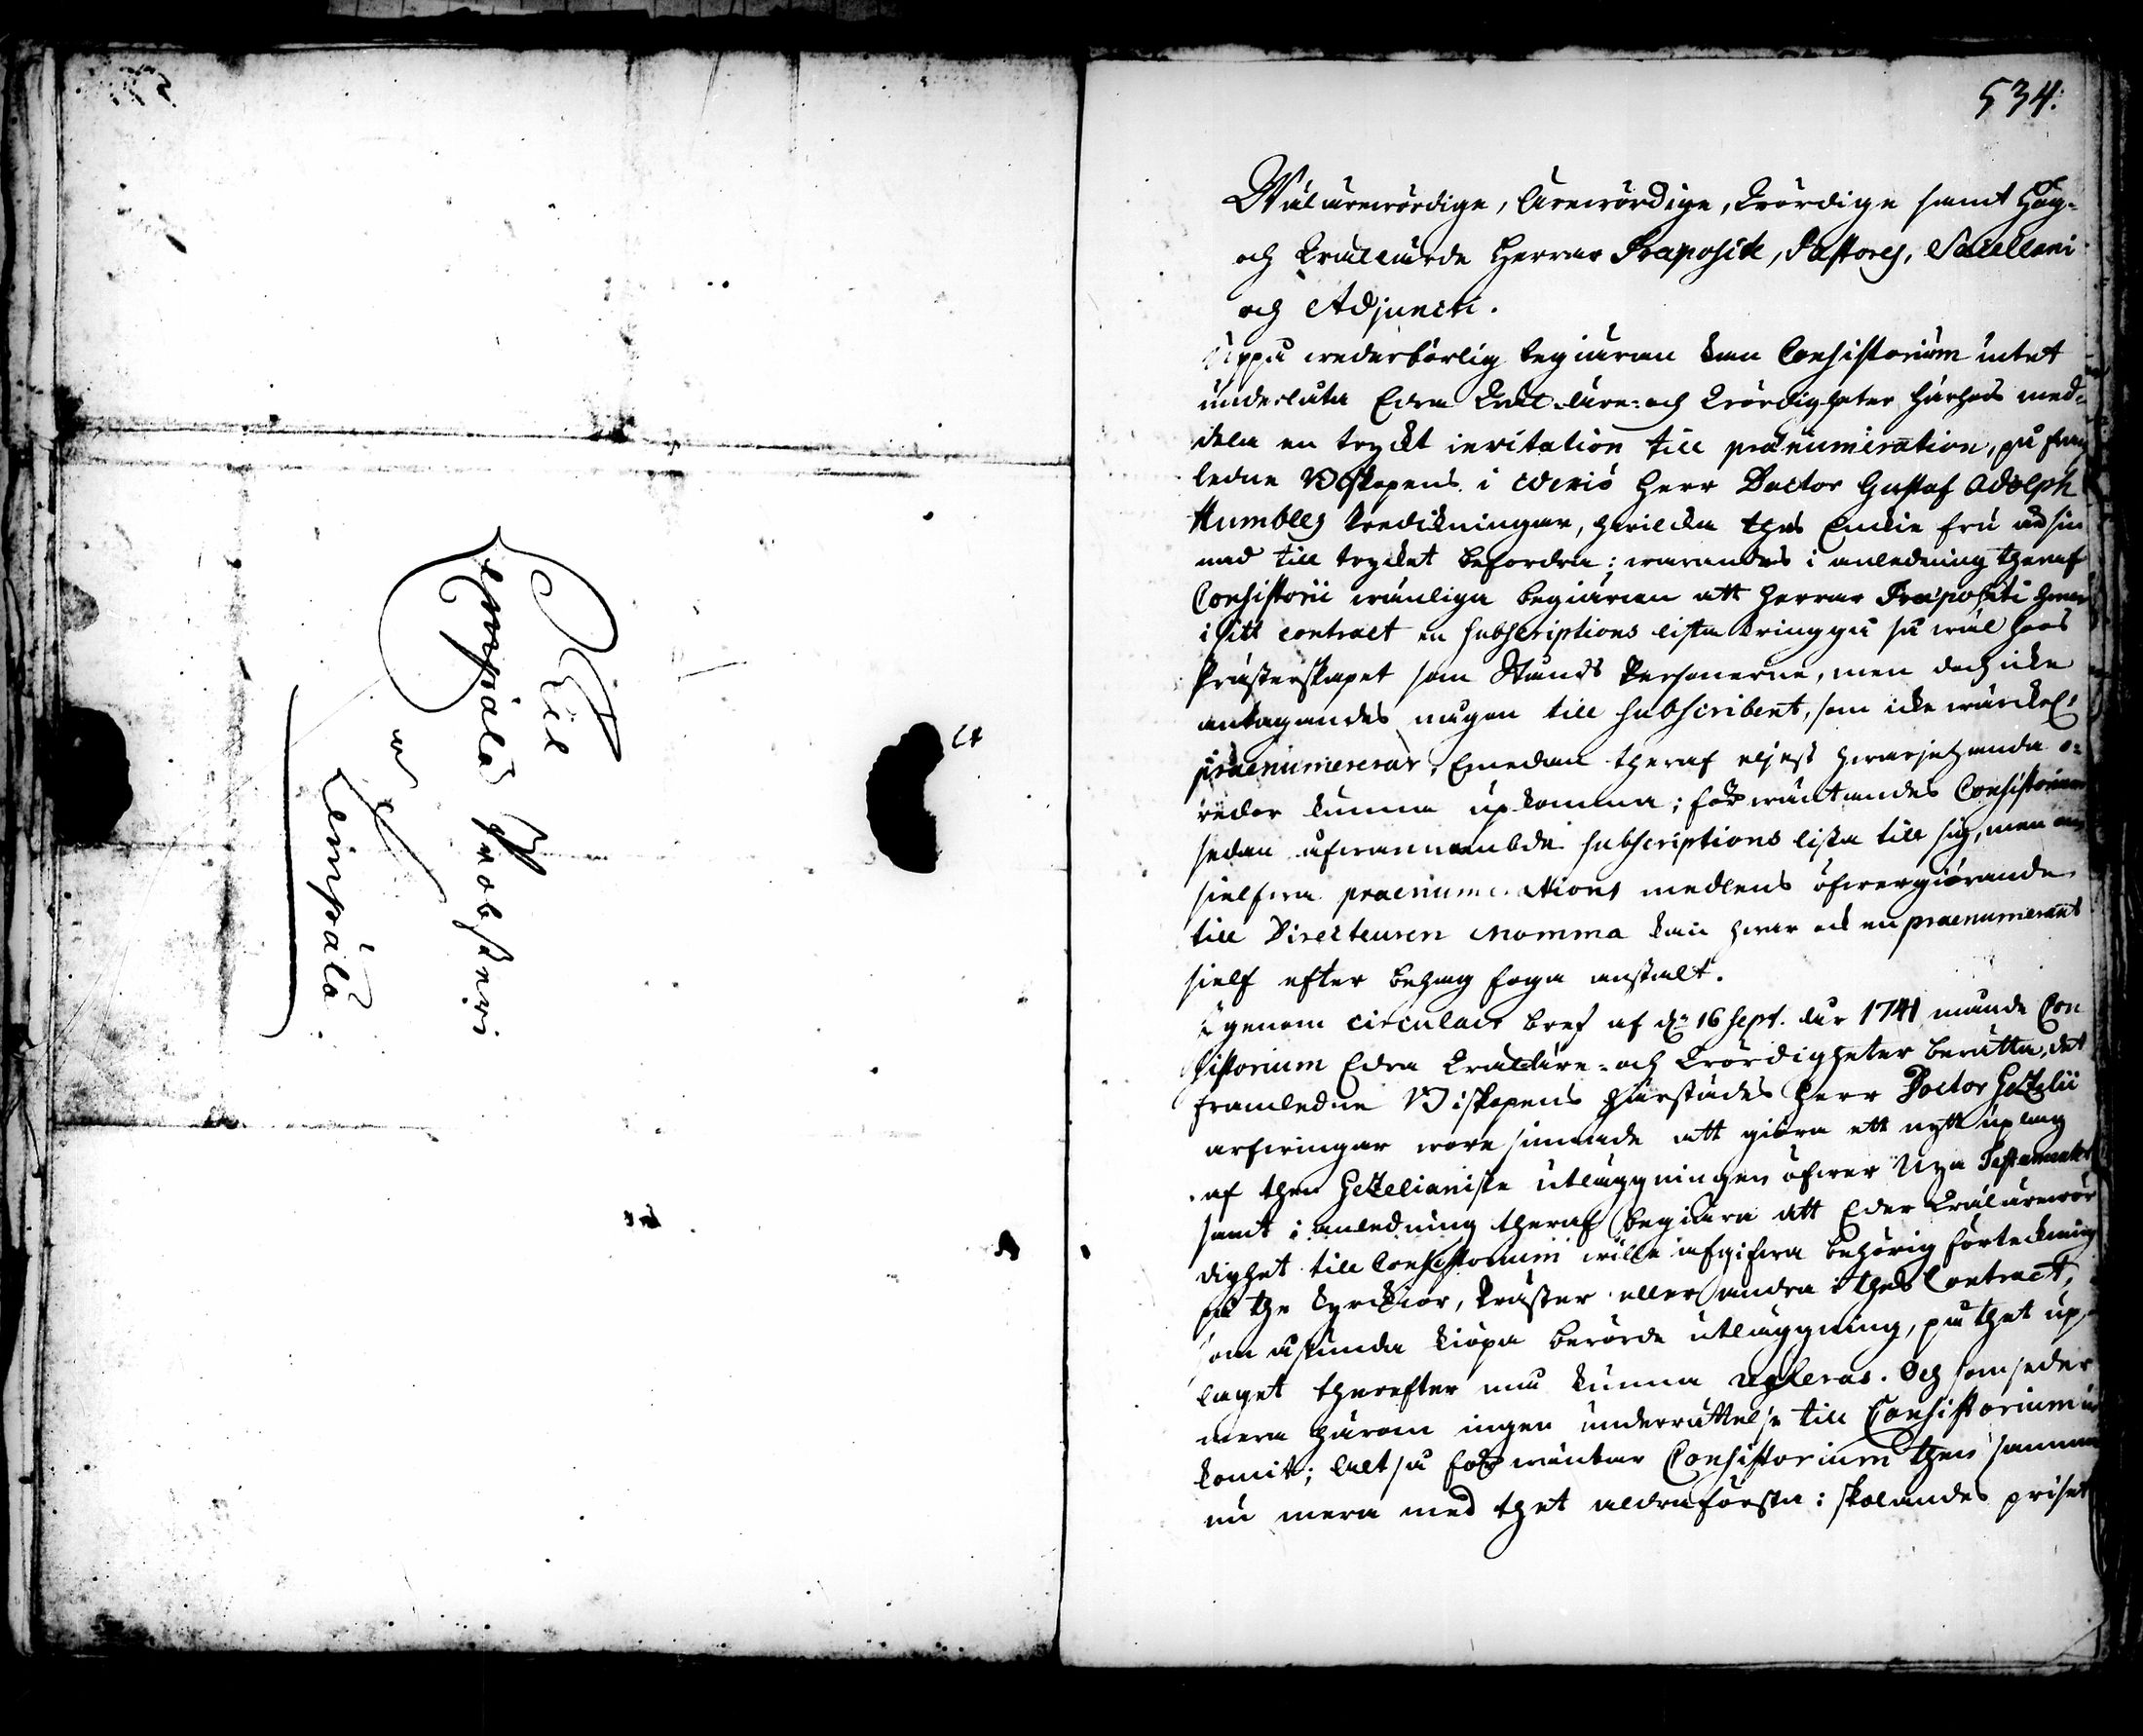 Til
Lempälä Probsteri
a
Lempälä
534.
Wälärewördige, Ärewördige, Wördige samt Hög-
och Wällärde Herrar Præpositi, Pastores, Sacellani
och Adjuncti.
Uppå wederbörlig begiäran kan Consistorium intet
underlåta Edra Wäl-Äre- och Wördigheter härhos med-
dela en tryckt invitation till prænumeration, på fram
ledne Biskopens i Wexiö Herr Doctor Gustaf Adolph
Humbles Predikningar, hwilcka thes Enckie Fru är sin
nad till trycket befordra; warandes i anledning theraf
Consistorii wänliga begiäran att Herrar Præpositi hwar
i sitt contract en subscriptions lista kringgå så wäl hoos
Prästerskapet som Stånds Personerne, men doch icke
antagandes någon till subscribent, som icke wärckel:
prænumererar, Emedan theraf eljest hwarjehanda o-
redor kunna upkomma; förwäntandes Consistorium
sedan ofwannembde subscriptions lista till sig, men om
sielfwa prænumerations medlens öfwergiörande
till Directeuren Momma kan hwar ock en prænumerant
sielf efter behag foga anstalt.
Igenom circulair bref af d: 16 Sept. år 1741 månde Con
sistorium Edra Wäl-Äre- och Wördigheter berätta, det
framledne Biskopens härstädes Herr Doctor Gezelii
arfwingar wore sinnade att giöra ett nytt uplag
af then Gezelianiske utläggningen öfwer Nya Testamentet
samt i anledning theraf begiära att Eder Wälärewör
dighet till Consistorium wille afgifwa behörig förteckning
på the Kyrckior, Präster eller andra i thes Contract,
som åstunda kiöpa berörde utläggning, på thet up-
laget therefter må kunna regleras. Och som seder
mera härom ingen underrättelse till Consistorium in
kommit; altså förwäntar Consistorium then samma
nu mera med thet aldraförsta: skolandes priset